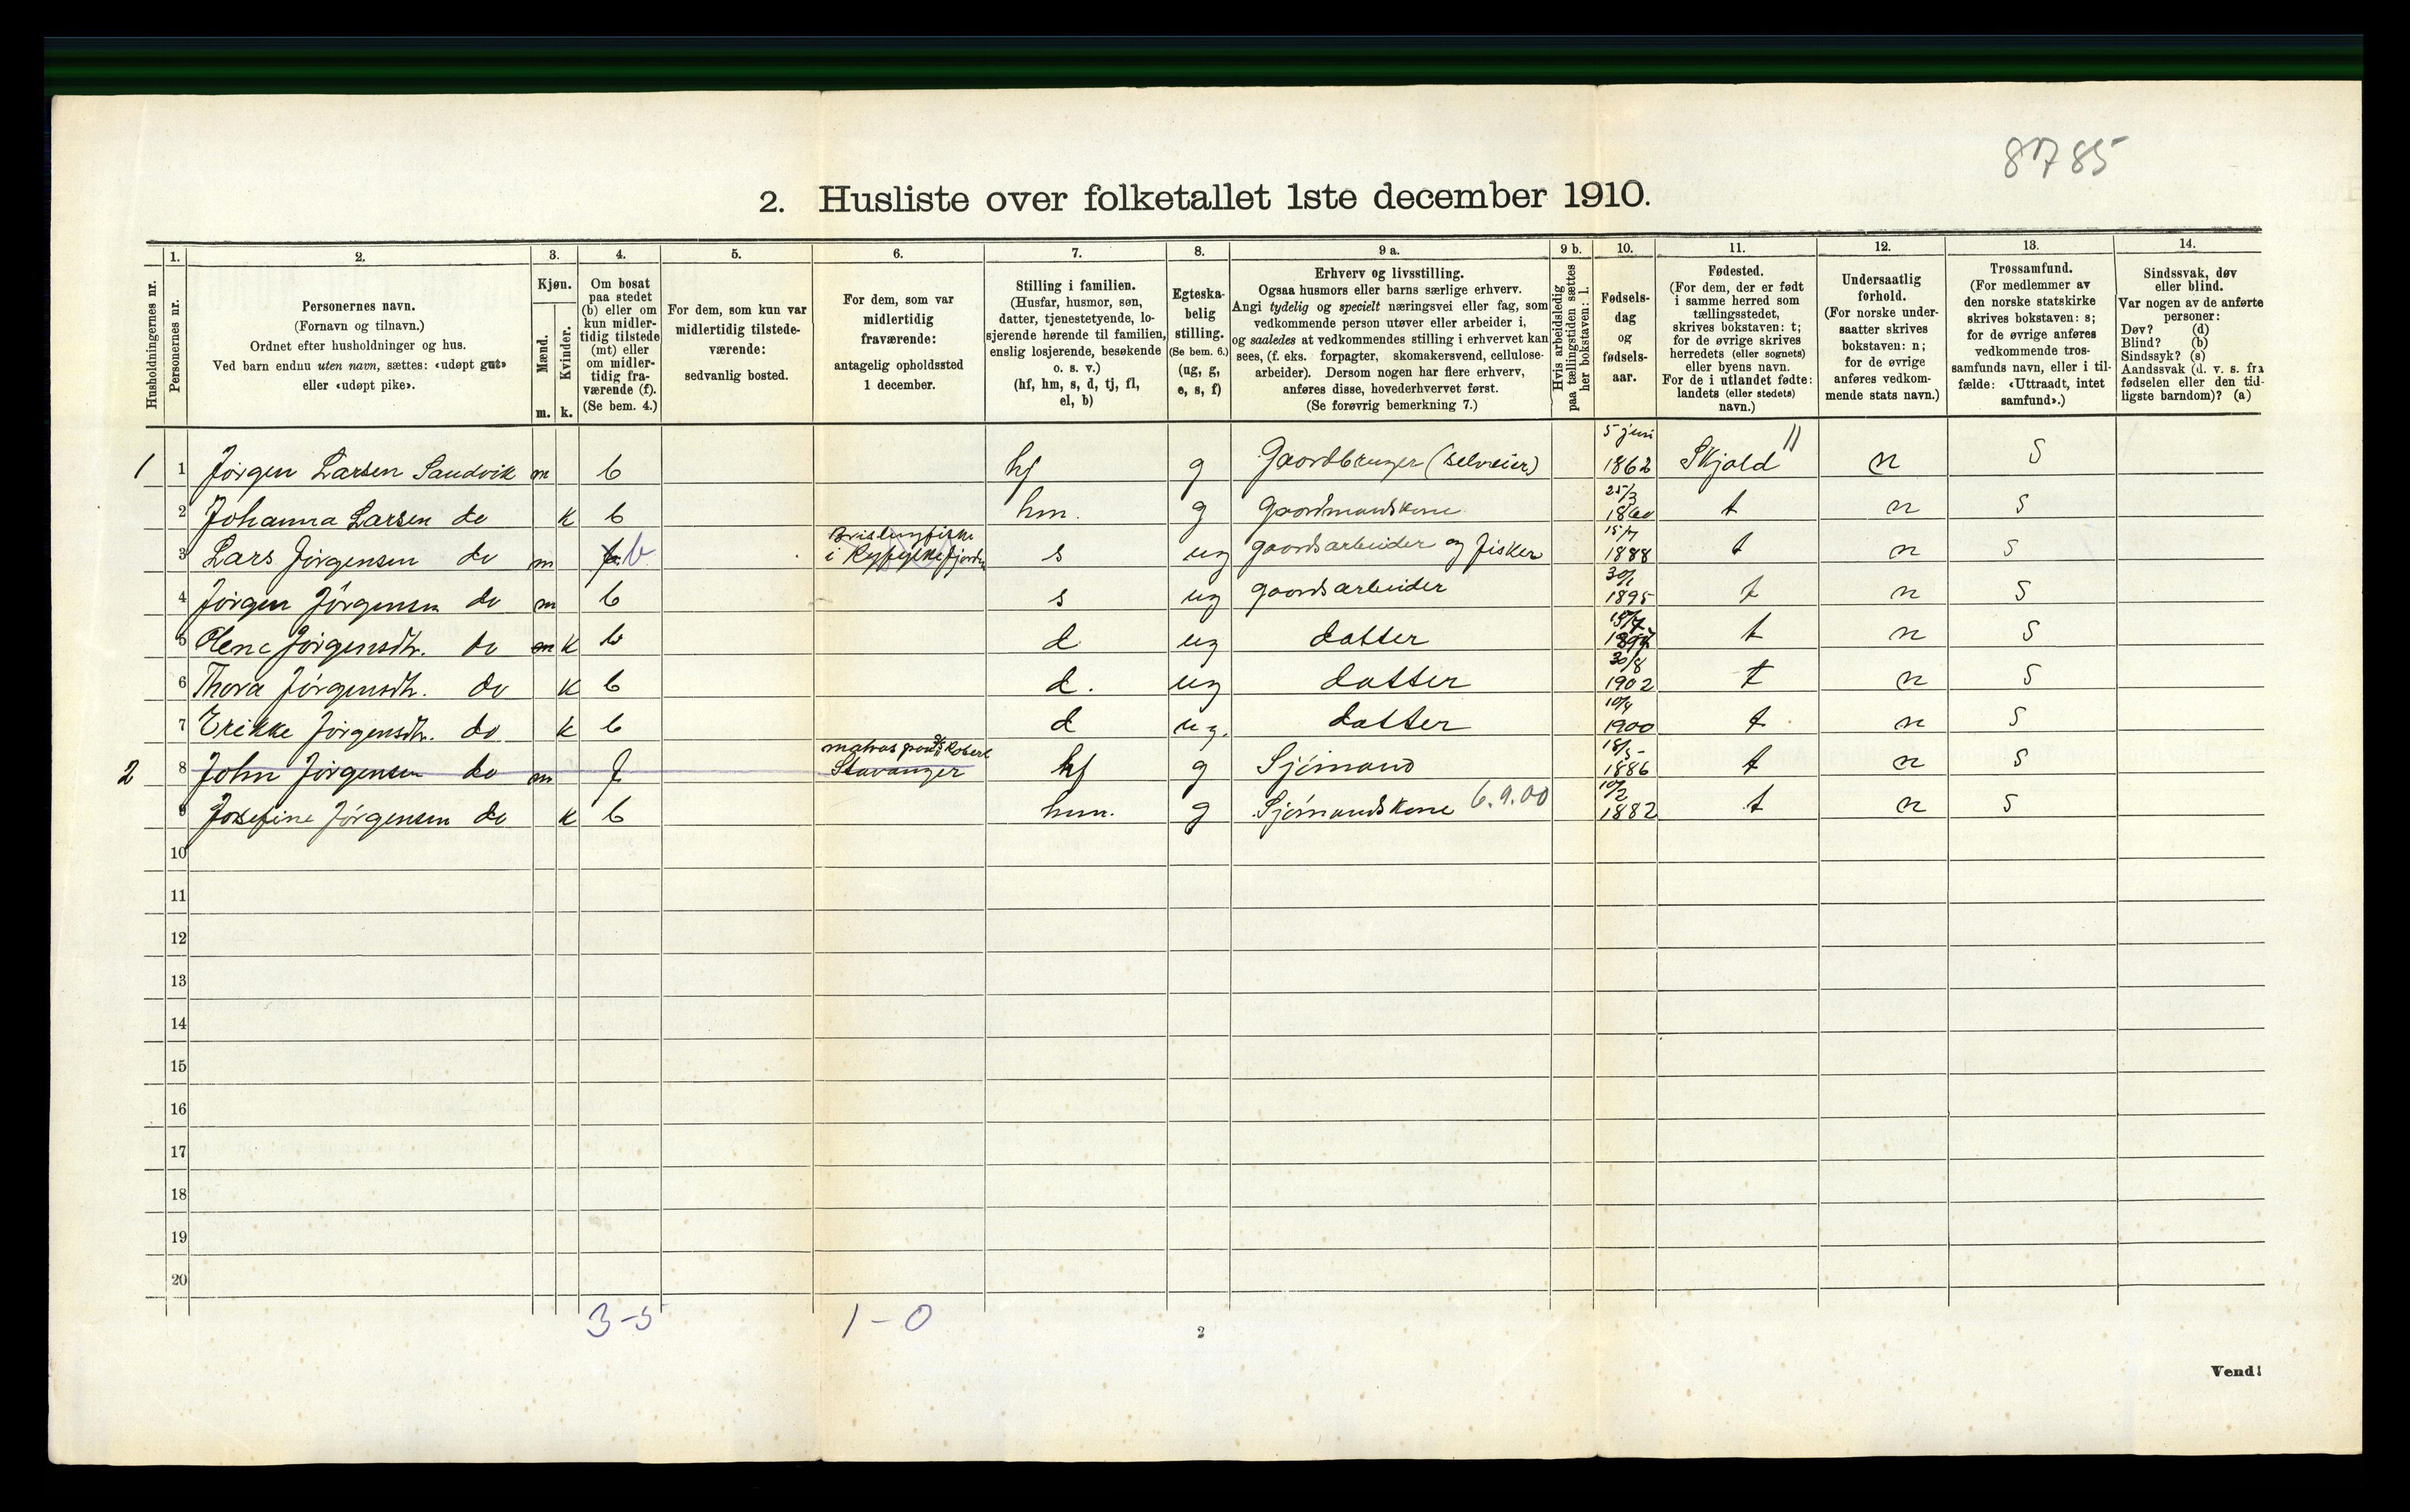 8785
2. Husliste over folketallet 1ste december 1910.
Husholdningernes nr.
1.
Personernes nr.
2.
Personernes navn.
(Fornavn og tilnavn.)
Ordnet efter husholdninger og hus.
Ved barn endnu uten navn, sættes: «udøpt gut»
eller «udøpt pike».
3.
Kjøn.
Mænd.
Kvinder.
m. k.
4.
Om bosat
paa stedet
(b) eller om
kun midler-
tidig tilstede
(mt) eller
om midler-
tidig fra-
værende (f).
(Se bem. 4.)
5.
For dem, som kun var
midlertidig tilstede-
værende:
sedvanlig bosted.
6.
For dem, som var
midlertidig
fraværende:
antagelig opholdssted
1 december.
7.
Stilling i familien.
(Husfar, husmor, søn,
datter, tjenestetyende, lo-
sjerende hørende til familien,
enslig losjerende, besøkende
o. s. v.)
(hf, hm, s, d, tj, fl,
el, b)
8.
Egteska-
belig
stilling.
(Se bem. 6.)
(ug, g,
e, s, f)
9 a.
Erhverv og livsstilling.
Ogsaa husmors eller barns særlige erhverv.
Angi tydelig og specielt næringsvei eller fag, som
vedkommende person utøver eller arbeider i,
og saaledes at vedkommendes stilling i erhvervet kan
sees, (f. eks. forpagter, skomakersvend, cellulose-
arbeider). Dersom nogen har flere erhverv,
anføres disse, hovederhvervet først.
(Se forøvrig bemerkning 7.)
9 b.
Hvis arbeidsledig
paa tællingstiden sættes
her bokstaven: l.
10.
Fødsels-
dag
og
fødsels-
aar.
11.
Fødested.
(For dem, der er født
i samme herred som
tællingsstedet,
skrives bokstaven: t;
for de øvrige skrives
herredets (eller sognets)
eller byens navn.
For de i utlandet fødte:
landets (eller stedets)
navn.)
12.
Undersaatlig
forhold.
(For norske under-
saatter skrives
bokstaven: n;
for de øvrige
anføres vedkom-
mende stats navn.)
13.
Trossamfund.
(For medlemmer av
den norske statskirke
skrives bokstaven: s;
for de øvrige anføres
vedkommende tros-
samfunds navn, eller i til-
fælde: «Uttraadt, intet
samfund».)
14.
Sindssvak, døv
eller blind.
Var nogen av de anførte
personer:
Døv? (d)
Blind? (b)
Sindssyk? (s)
Aandssvak (d. v. s. fra
fødselen eller den tid-
ligste barndom)? (a)
1 1 Jørgen Larsen Sandvik m b hf g Gaardbruger (selveier) 5 juni 1862 Skjold 11 n s
2 Johanna Larsen do k b hm. g gaardmandskone 25/3 1860 t n s
3 Lars Jørgensen do m f b Brislingfiske i Ryfylkefjorden s ug gaardsarbeider og fisker 15/7 1888 t n s
4 Jørgen Jørgensen do m b s ug gaardsarbeider 30/1 1895 t n s
5 Olene Jørgensdtr. do m k b d ug datter t n s
6 Thora Jørgensdtr. do k b d. ug datter 30/8 1902 t n s
7 Erikke Jørgensdtr. do k b d ug. datter 10/4 1900 t n s
2 8 John Jørgensen do m f Robert Stavanger hf g Sjømand 18/5 1886 t n s
9 Josefine Jørgensen do k b hm. g Sjømandskone 6.9.00 10/2 1882 t n s
10
11
12
13
14
15
16
17
18
19
20
3-5 1-0
2
Vend!